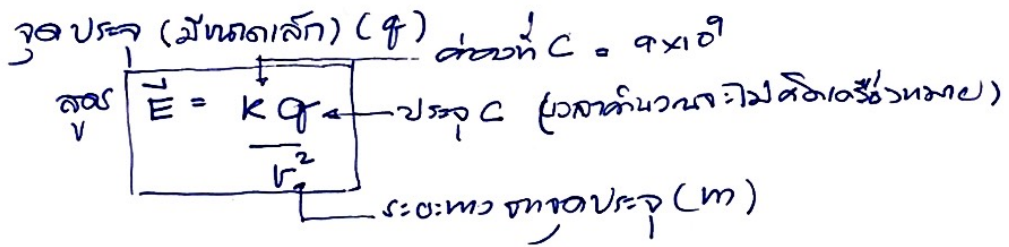 จุดประจุ (มีขนาดเล็ก) (q)
ค่าคงที่ C = 9x10⁹
สูตร E⃗ = Kq / r²
ประจุ C (เวลาคำนวณจะไม่คิดเครื่องหมาย)
ระยะทาง จากจุดประจุ (m)